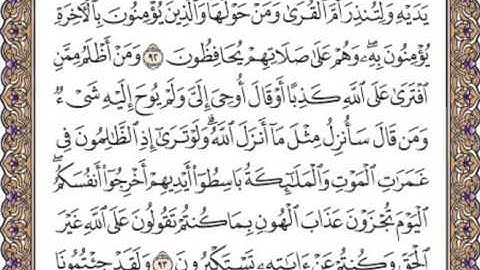 يَدَيْهِ وَلِتُنذِرَ أُمَّ ٱلْقُرَىٰ وَمَنْ حَوْلَهَا وَٱلَّذِينَ يُؤْمِنُونَ بِٱلْءَاخِرَةِ
يُؤْمِنُونَ بِهِۦ وَهُمْ عَلَىٰ صَلَاتِهِمْ يُحَافِظُونَ ٩٢ وَمَنْ أَظْلَمُ مِمَّنِ
ٱفْتَرَىٰ عَلَى ٱللَّهِ كَذِبًا أَوْ قَالَ أُوحِىَ إِلَىَّ وَلَمْ يُوحَ إِلَيْهِ شَىْءٌ
وَمَن قَالَ سَأُنزِلُ مِثْلَ مَآ أَنزَلَ ٱللَّهُ ۗ وَلَوْ تَرَىٰٓ إِذِ ٱلظَّٰلِمُونَ فِى
غَمَرَٰتِ ٱلْمَوْتِ وَٱلْمَلَٰٓئِكَةُ بَاسِطُوٓا۟ أَيْدِيهِمْ أَخْرِجُوٓا۟ أَنفُسَكُمُ ۖ
ٱلْيَوْمَ تُجْزَوْنَ عَذَابَ ٱلْهُونِ بِمَا كُنتُمْ تَقُولُونَ عَلَى ٱللَّهِ غَيْرَ
ٱلْحَقِّ وَكُنتُمْ عَنْ ءَايَٰتِهِۦ تَسْتَكْبِرُونَ ٩٣ وَلَقَدْ جِئْتُمُونَا